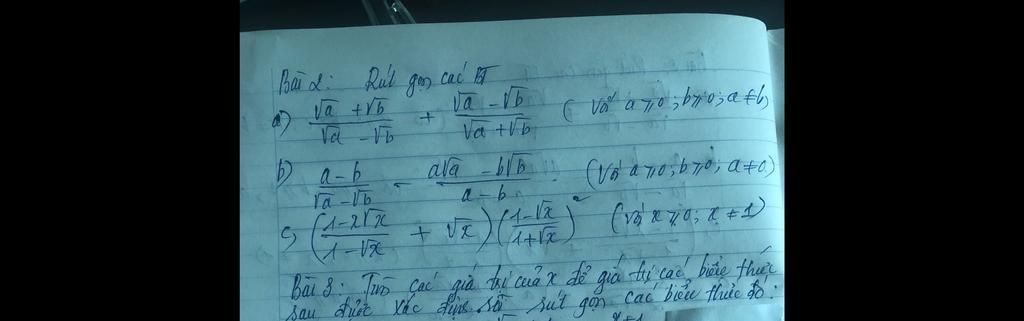 Bài 2: Rút gọn các BT
a) (√a + √b)/(√a - √b) + (√a - √b)/(√a + √b) (Với a ⩾ 0; b ⩾ 0; a ≠ b)
b) (a - b)/(√a - √b) - (a√a - b√b)/(a - b) (Với a ⩾ 0; b ⩾ 0; a ≠ 0)
c) ((1 - x√x)/(1 - √x) + √x)((1 - √x)/(1 + √x))² (với x ⩾ 0; x ≠ 1)
Bài 3: Tìm các giá trị của x để giá trị các biểu thức
sau được xác định rồi rút gọn các biểu thức đó: